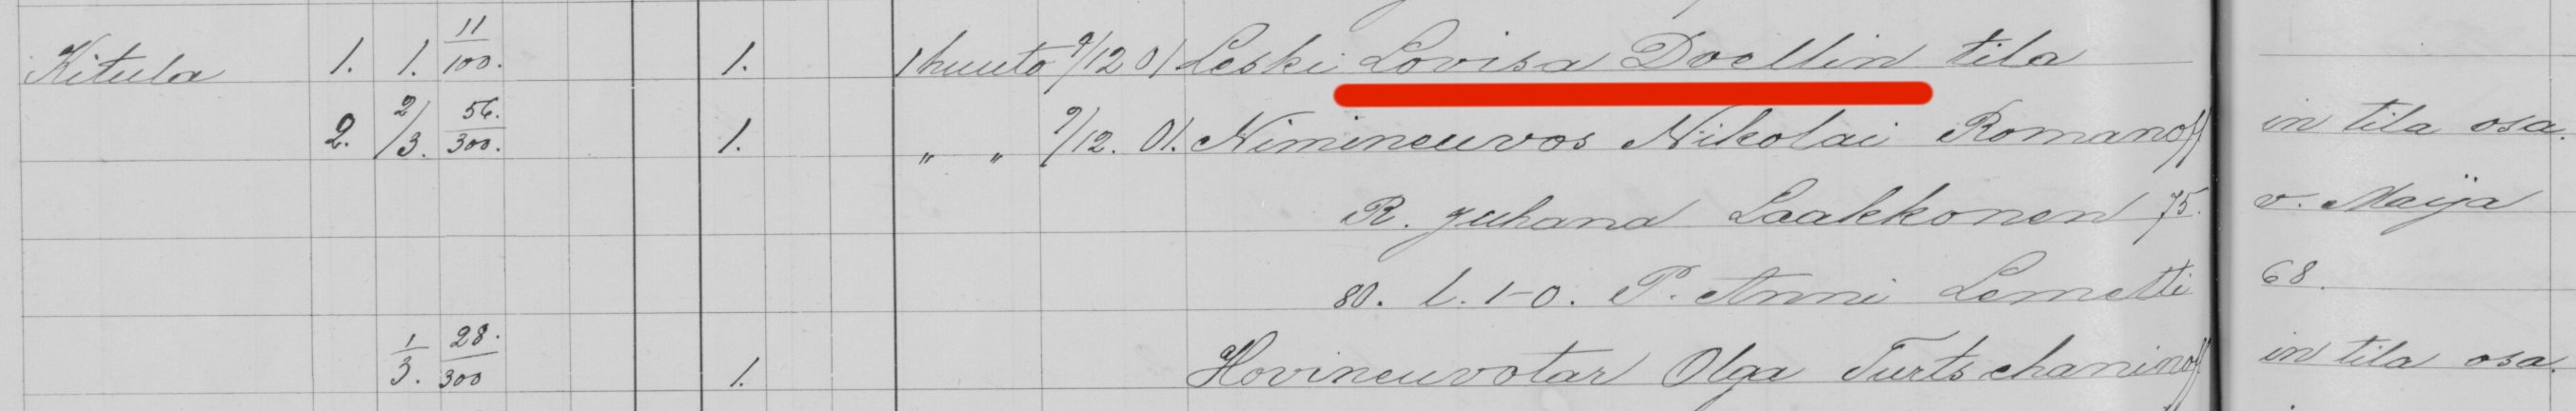 Kitula 1. 1. 11/100. 1. 1 huuto 9/12 01 Leski Lovisa Doellin tila
2. 2/3. 56./300. 1. „ „ 9/12. 01. Nimineuvos Nikolai Romanoff in tila osa.
R. Juhana Laakkonen 75. v. Maija
80. l. 1-0. P. Anni Lemetti 68.
1/3. 28./300 1. Hovineuvotar Olga Turtschaninoff in tila osa.